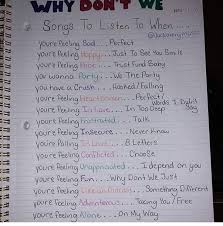 WHY DON'T WE
Songs To Listen To When...
youre Feeling Sad... Perfect
youre Feeling Happy... Just To See You Smile
youre Feeling Hope... Trust Fund Baby
you wanna Party... We The Party
you have a Crush... Hooked / Falling
youre Feeling Heartbroken... Perfect / Words I Didn't Say
youre Feeling In Love... In Too Deep
youre Feeling Frustrated... Talk
youre Feeling Insecure... Never Know
youre Falling In Love... 8 Letters
youre Feeling Conflicted... Choose
youre Feeling Unappreciated... I depend on you
youre Feeling Fun... Why Don't We Just
youre Feeling Something Different
youre Feeling Adventurous... Taking You / Free
youre Feeling Alone... On My Way